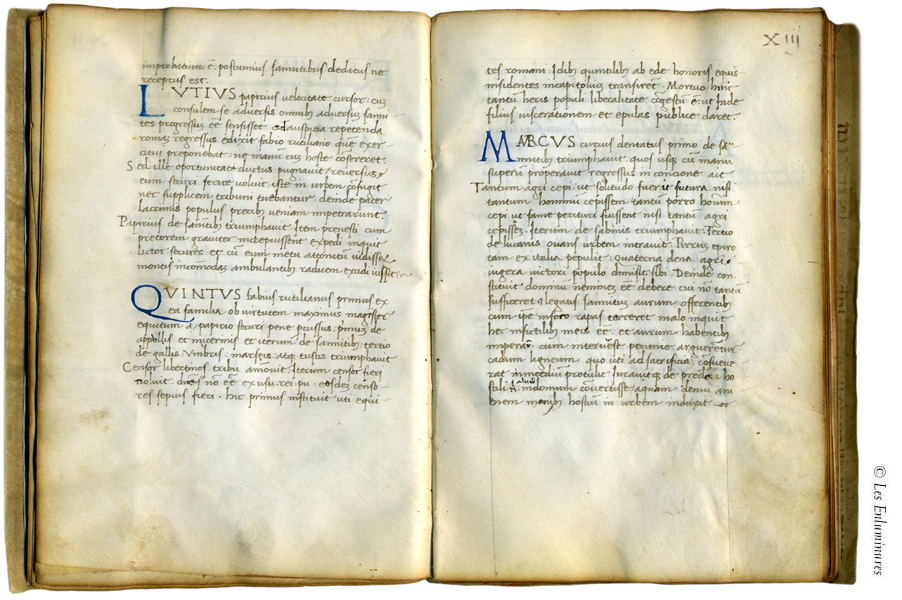 improbatum ē. postumius samnitibus deditus nec
receptus est.
LVTIVS papirius velocitate cursor: cū
consulem se adversis omnib adversus samni
tes progressus eē sensisset ad auspicia repetenda
romā regressus edixit fabio rutiliano que exer
citui preponebat: ne manū cū hoste consereret.
Sed ille oportunitate ductus pugnavit: reversus
eum securi ferire voluit. iste in urbem cōfugit
nec supplicem tribuni tuebantur. deinde pater
lacrimis populus precib veniam impetrarunt.
Papirius de samnitib triumphavit. Item prenesti cum
pretorem graviter increpuissent expedi inquit
lictor secures et cū eum metu attonitū vidisset
montis incōmodas ambulantib radicem excidi iussit.
QVINTVS fabius rutilianus primus ex
ea familia ob virtutem maximus magister
equitum a papirio securi pene pcussus. primus de
appollis et nucernis et iterum de samnitib, tertio
de gallis Vmbris, marseis, atq tuscis triumphavit
Censor libertinos tribu amovit. Iterum censor fieri
noluit. dices nō eē ex usu rei. pu. eosdē censo
res sepius fieri. hic primus instituit uti equi
XIIj
tes romani Idib quintilib ab ede honoris equis
insidentes in capitoliū transirēt. Mortuo huic
tantū heris populi liberalitate cōgestū ē: ut inde
filius viscerationem et epulas publice daret.
MARCVS curius dentatus primo de sa
mnitib triumphavit. quos usq ad manū
superū properavit regressus in concione ait
Tantum agri cepi ut solitudo fuerit futura nisi
tantum hominū cepissem tantū porro hominū
cepi ut fame perituri fuissent nisi tantū agri
cepissē. Iterum de sabinis triumphavit. Tertio
de lucanis ovans urbem intravit. Pirrū epiro
tam ex italia populit. quaterna dena agri
iugera victori populo divisit. sibi Deinde con
stituit dominū nemine eē debere cui nō tantū
sufficeret legatis samnitiū aurum offerentib
cum ipe in foco rapas torreret malo inquit
hec in fictilib meis eē et aurum habentib
imperar. cum interversē pecunie argueretur
cadum ligneum quo uti ad sacrificia cōsueve
rat in mediū protulit Iuravitq de preda ho
stili in domum cōvertisse aquam denui ani
enem manib hostiū in urbem induxit.
© Les Enluminures